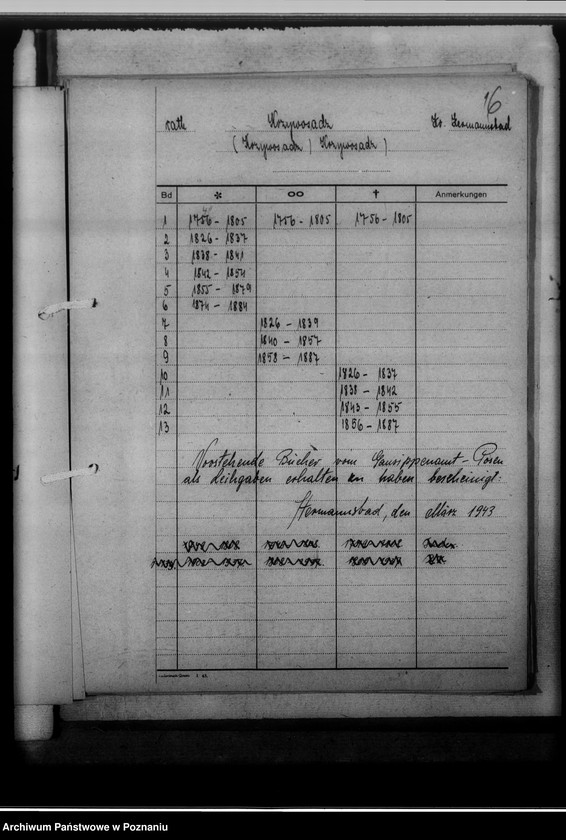 16
kath. Krzywosadz Kr. Hermannsbad
( Krzywosadz / Krzywosadz )
Bd * ∞ † Anmerkungen
1 1756 - 1805 1756 - 1805 1756 - 1805
2 1826 - 1837
3 1838 - 1841
4 1842 - 1854
5 1855 - 1879
6 1874 - 1884
7 1826 - 1839
8 1840 - 1857
9 1858 - 1887
10 1826 - 1837
11 1838 - 1842
12 1843 - 1855
13 1856 - 1887
Vorstehende Bücher vom Gausippenamt - Posen
als Leihgaben erhalten zu haben bescheinigt:
Hermannsbad, den März 1943
Archiwum Państwowe w Poznaniu